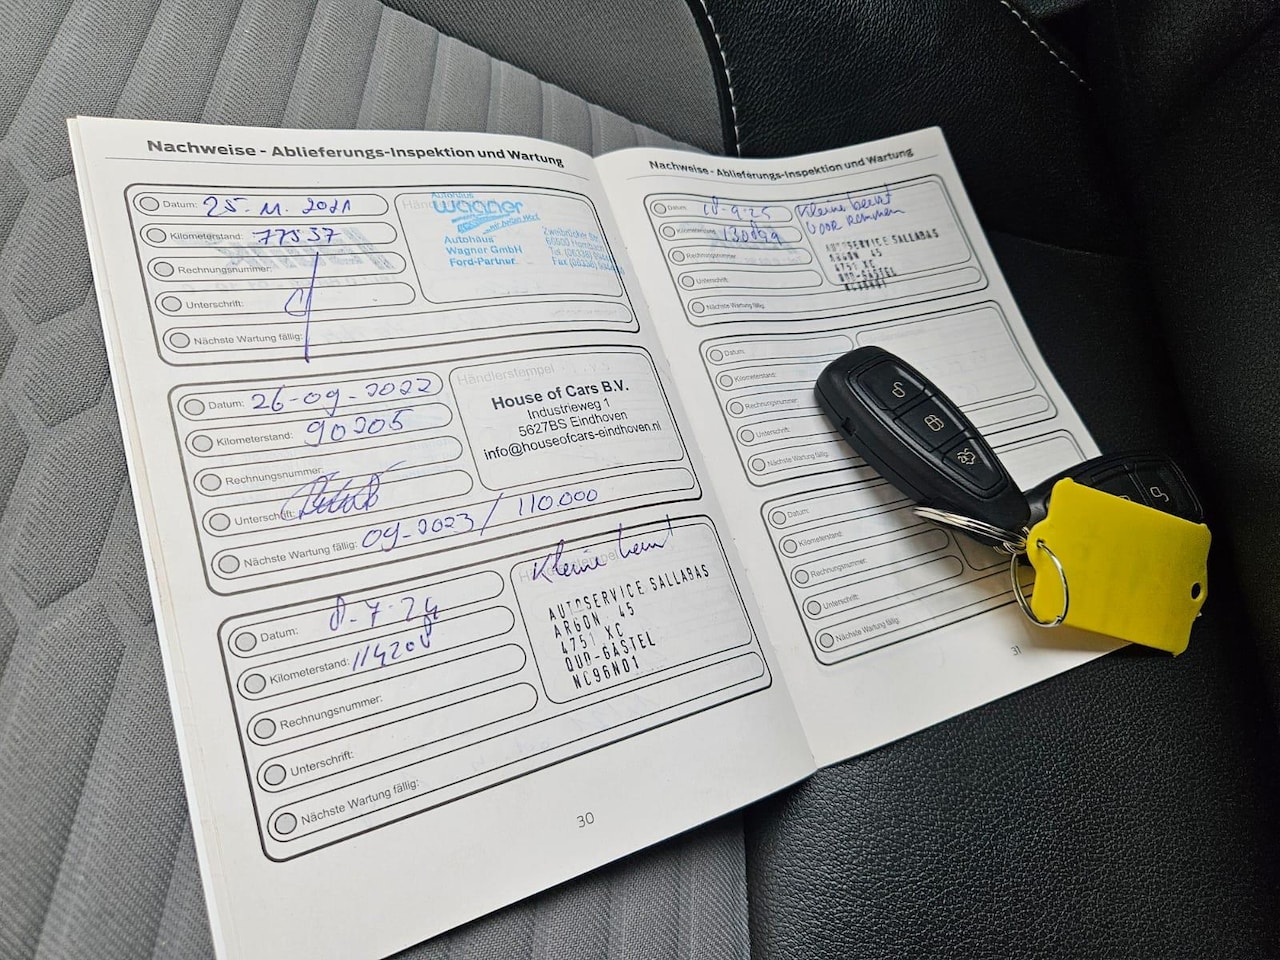 Nachweise - Ablieferungs-Inspektion und Wartung
Datum: 25-11-2021
Kilometerstand: 77537
Rechnungsnummer:
Unterschrift:
Nächste Wartung fällig:
Autohaus
wagner
Autohaus
Wagner GmbH
Ford-Partner.
Datum: 26-09-2022
Kilometerstand: 90205
Rechnungsnummer:
Unterschrift:
Nächste Wartung fällig: 09-2023 / 110.000
Händlerstempel
House of Cars B.V.
Industrieweg 1
5627BS Eindhoven
info@houseofcars-eindhoven.nl
Datum: 8-7-24
Kilometerstand: 114208
Rechnungsnummer:
Unterschrift:
Nächste Wartung fällig:
Kleine beurt
AUTOSERVICE SALLABAS
ARGON 45
4751 XC
OUD-GASTEL
NC96N01
30
Nachweise - Ablieferungs-Inspektion und Wartung
Datum: 18-9-25
Kilometerstand: 130899
Rechnungsnummer:
Unterschrift:
Nächste Wartung fällig:
Kleine beurt
Voor remmen
AUTOSERVICE SALLABAS
ARGON 45
4751 XC
OUD-GASTEL
NC96N01
Datum:
Kilometerstand:
Rechnungsnummer:
Unterschrift:
Nächste Wartung fällig:
Datum:
Kilometerstand:
Rechnungsnummer:
Unterschrift:
Nächste Wartung fällig:
31